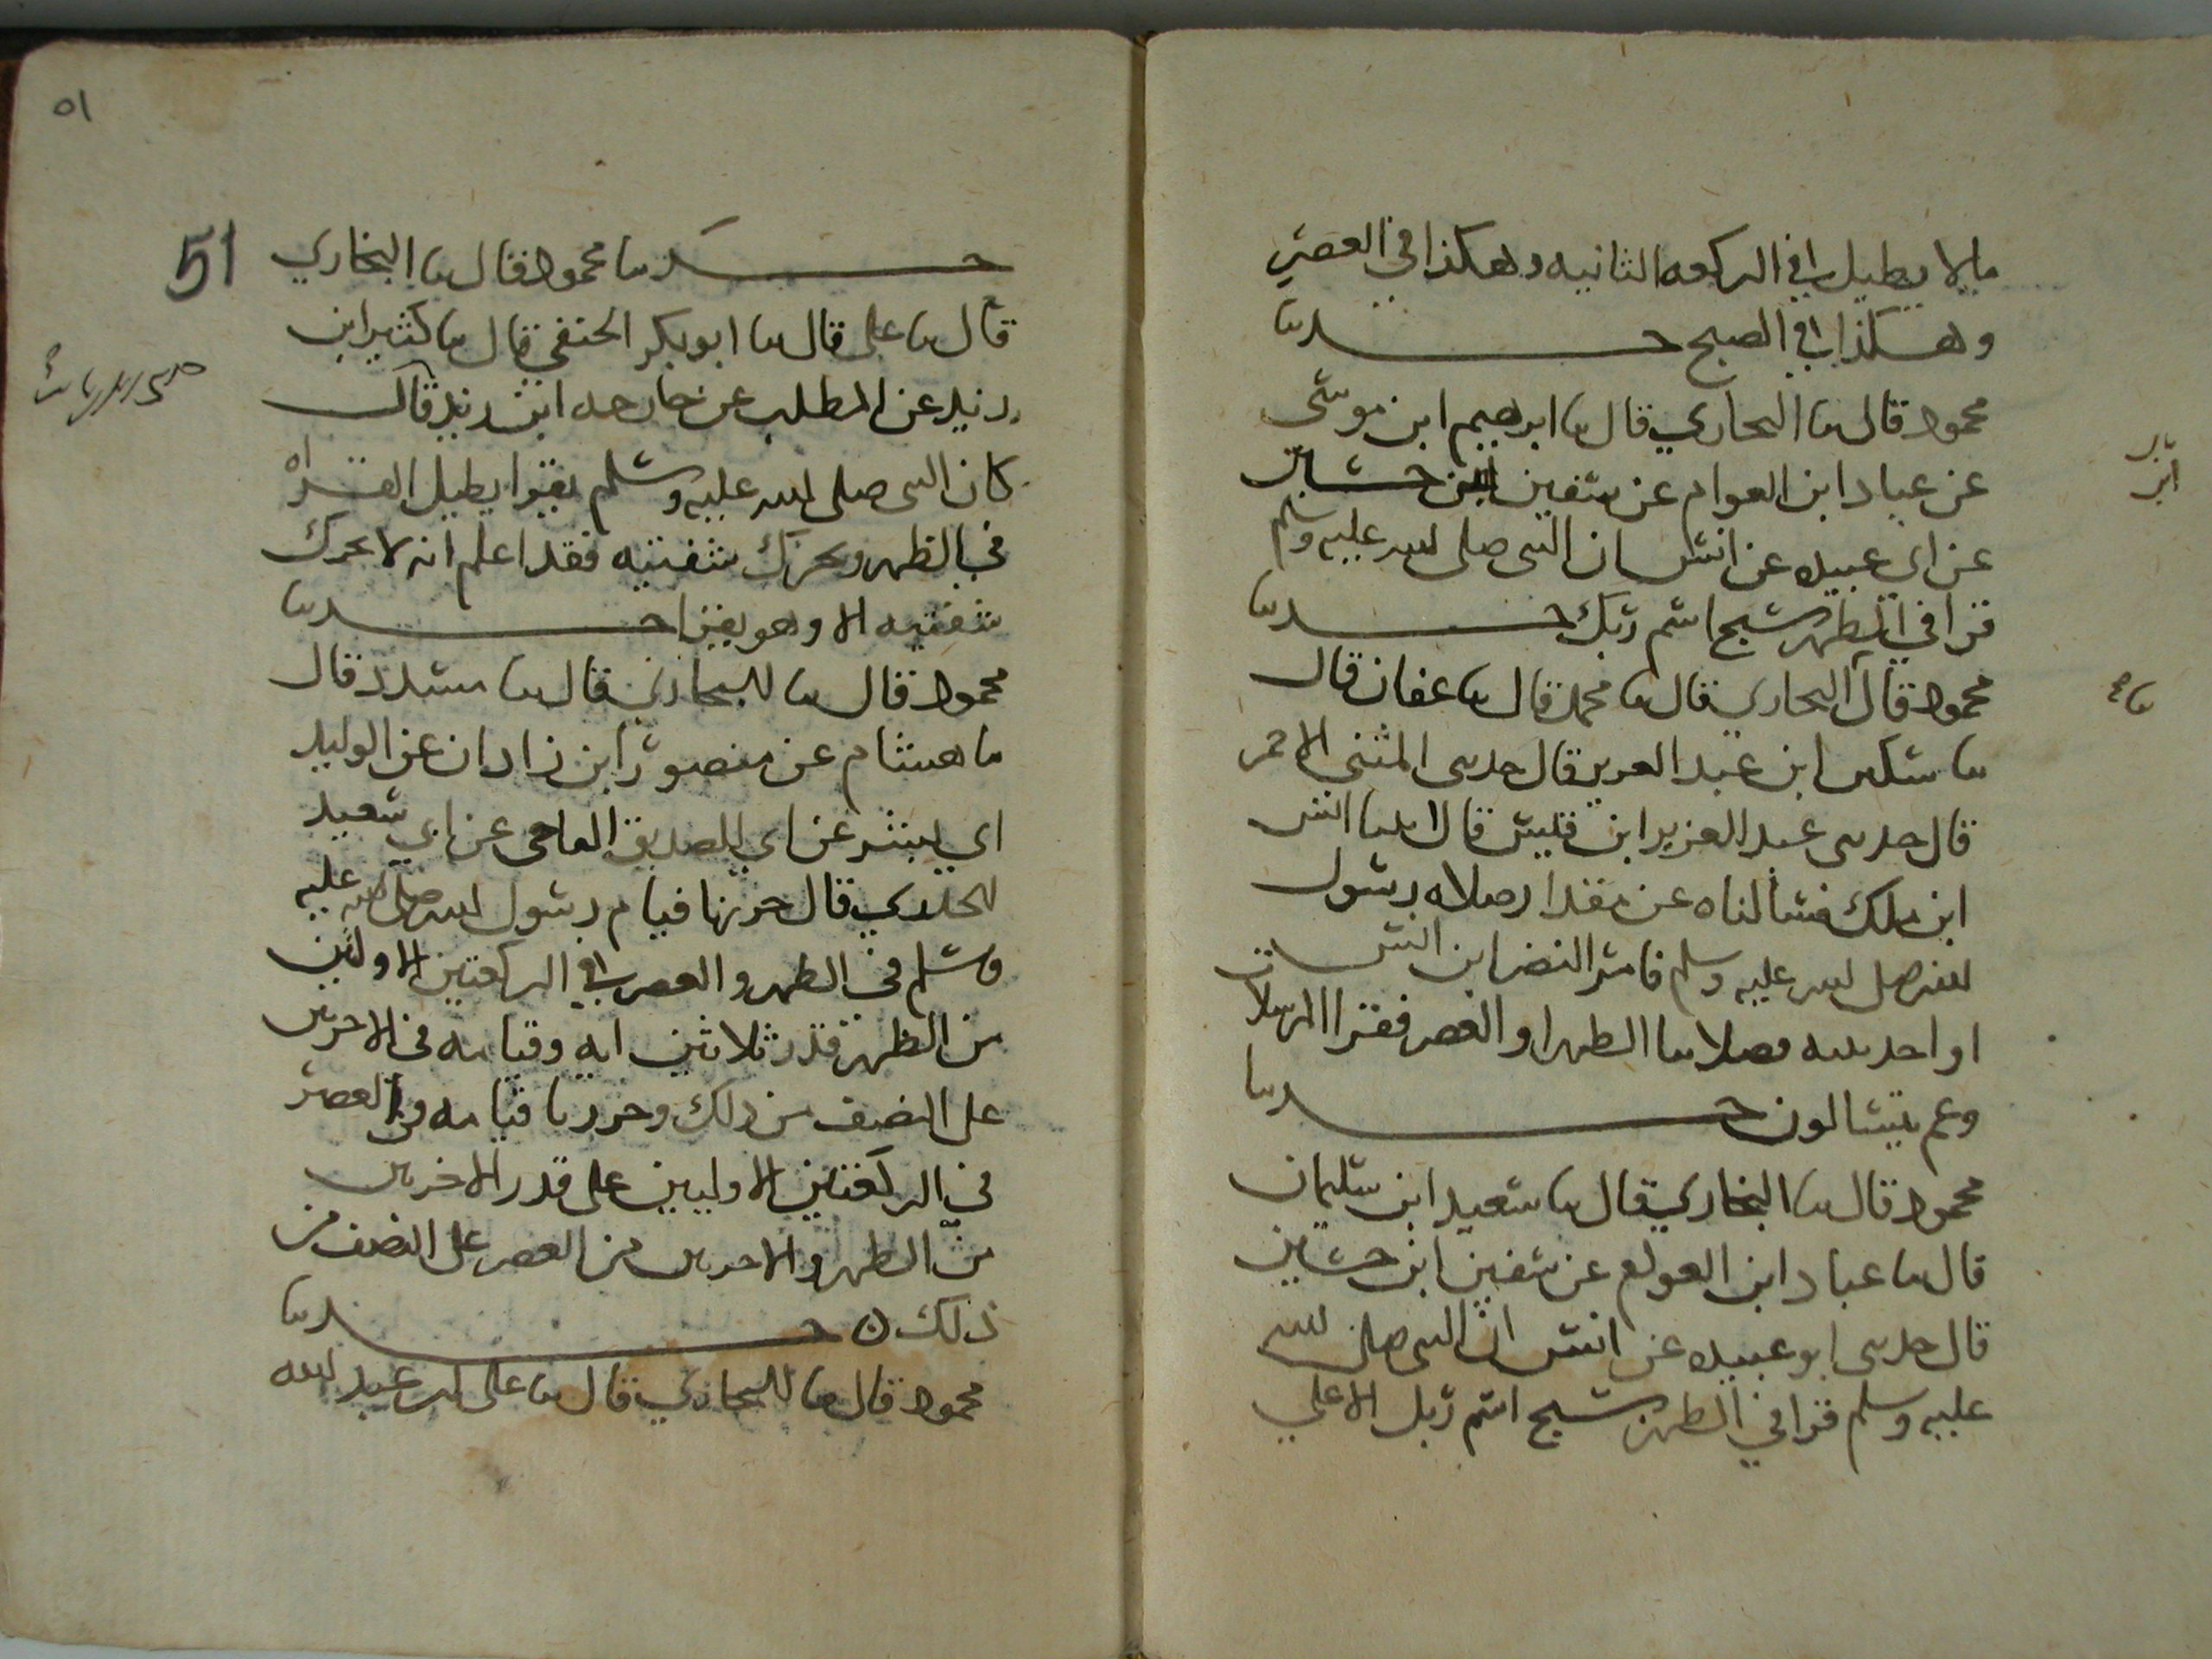 ما لا يطيل في الركعه الثانيه وهكذا في العصر
وهكذا في الصبح حدثنا
محمود قال نا البخاري قال نا ابرهيم ابن موسى
عن عباد ابن العوام عن سفين ابن حسين
عن ابي عبيده عن انس ان النبي صلى الله عليه وسلم
قرا في الظهر سبح اسم ربك حدثنا
محمود قال البخاري قال نا محمد قال نا عفان قال
نا سكين ابن عبد العزيز قال حدثني المثنى الاحمر
قال حدثني عبد العزيز ابن قيس قال اتينا انس
ابن ملك فسالناه عن مقدار صلاه رسول
الله صلى الله عليه وسلم فامر النضر ابن انس
او احد بنيه فصلا بنا الظهر او العصر فقرا المرسلات
وعم يتسالون حدثنا
محمود قال نا البخاري قال نا سعيد ابن سليمان
قال نا عباد ابن العوام عن سفين ابن حسين
قال حدثني ابو عبيده عن انس ان النبي صلى الله
عليه وسلم قرا في الظهر سبح اسم ربك الاعلي
٥١
51
حدثنا محمود قال نا البخاري
قال نا علي قال نا ابو بكر الحنفي قال نا كثير ابن
زيد عن المطلب عن خارجه ابن زيد قال
كان النبي صلى الله عليه وسلم يقرا يطيل القراه
في الظهر ويحرك شفتيه فقد اعلم انه لا يحرك
شفتيه الا وهو يقرا حدثنا
محمود قال نا البخاري قال نا مسدد قال
نا هشام عن منصور ابن زاذان عن الوليد
ابي بشر عن ابي الصديق الناجي عن ابي سعيد
الخدري قال حزرنا قيام رسول الله صلى الله عليه
وسلم في الظهر والعصر في الركعتين الاولين
من الظهر قدر ثلاثين ايه وقيامه في الاخرين
على النصف من ذلك وحزرنا قيامه في العصر
في الركعتين الاوليين على قدر الاخرين
من الظهر والاخرين من العصر على النصف من
ذلك حدثنا
محمود قال نا البخاري قال نا علي ابن عبد الله